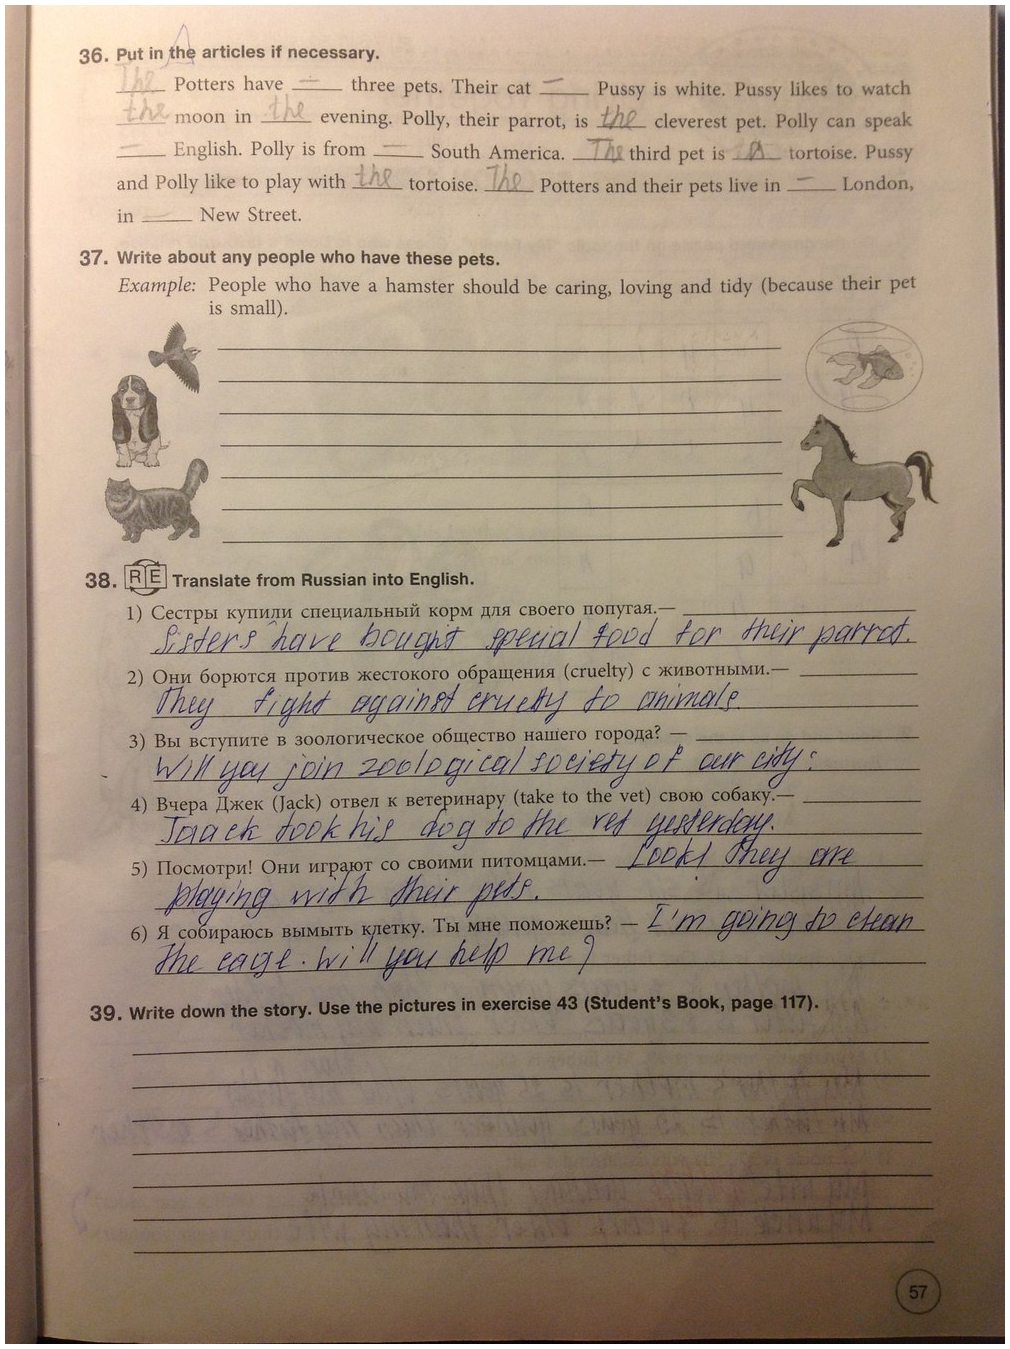 36. Put in the articles if necessary.
The Potters have — three pets. Their cat — Pussy is white. Pussy likes to watch
the moon in the evening. Polly, their parrot, is the cleverest pet. Polly can speak
— English. Polly is from — South America. The third pet is a tortoise. Pussy
and Polly like to play with the tortoise. The Potters and their pets live in — London,
in — New Street.
37. Write about any people who have these pets.
Example: People who have a hamster should be caring, loving and tidy (because their pet
is small).
38. RE Translate from Russian into English.
1) Сестры купили специальный корм для своего попугая.—
Sisters have bought special food for their parrot.
2) Они борются против жестокого обращения (cruelty) с животными.—
They fight against cruelty to animals.
3) Вы вступите в зоологическое общество нашего города? —
Will you join zoological society of our city?
4) Вчера Джек (Jack) отвел к ветеринару (take to the vet) свою собаку.—
Jaack took his dog to the vet yesterday.
5) Посмотри! Они играют со своими питомцами.— Look! They are
playing with their pets.
6) Я собираюсь вымыть клетку. Ты мне поможешь? — I'm going to clean
the cage. Will you help me?
39. Write down the story. Use the pictures in exercise 43 (Student's Book, page 117).
57